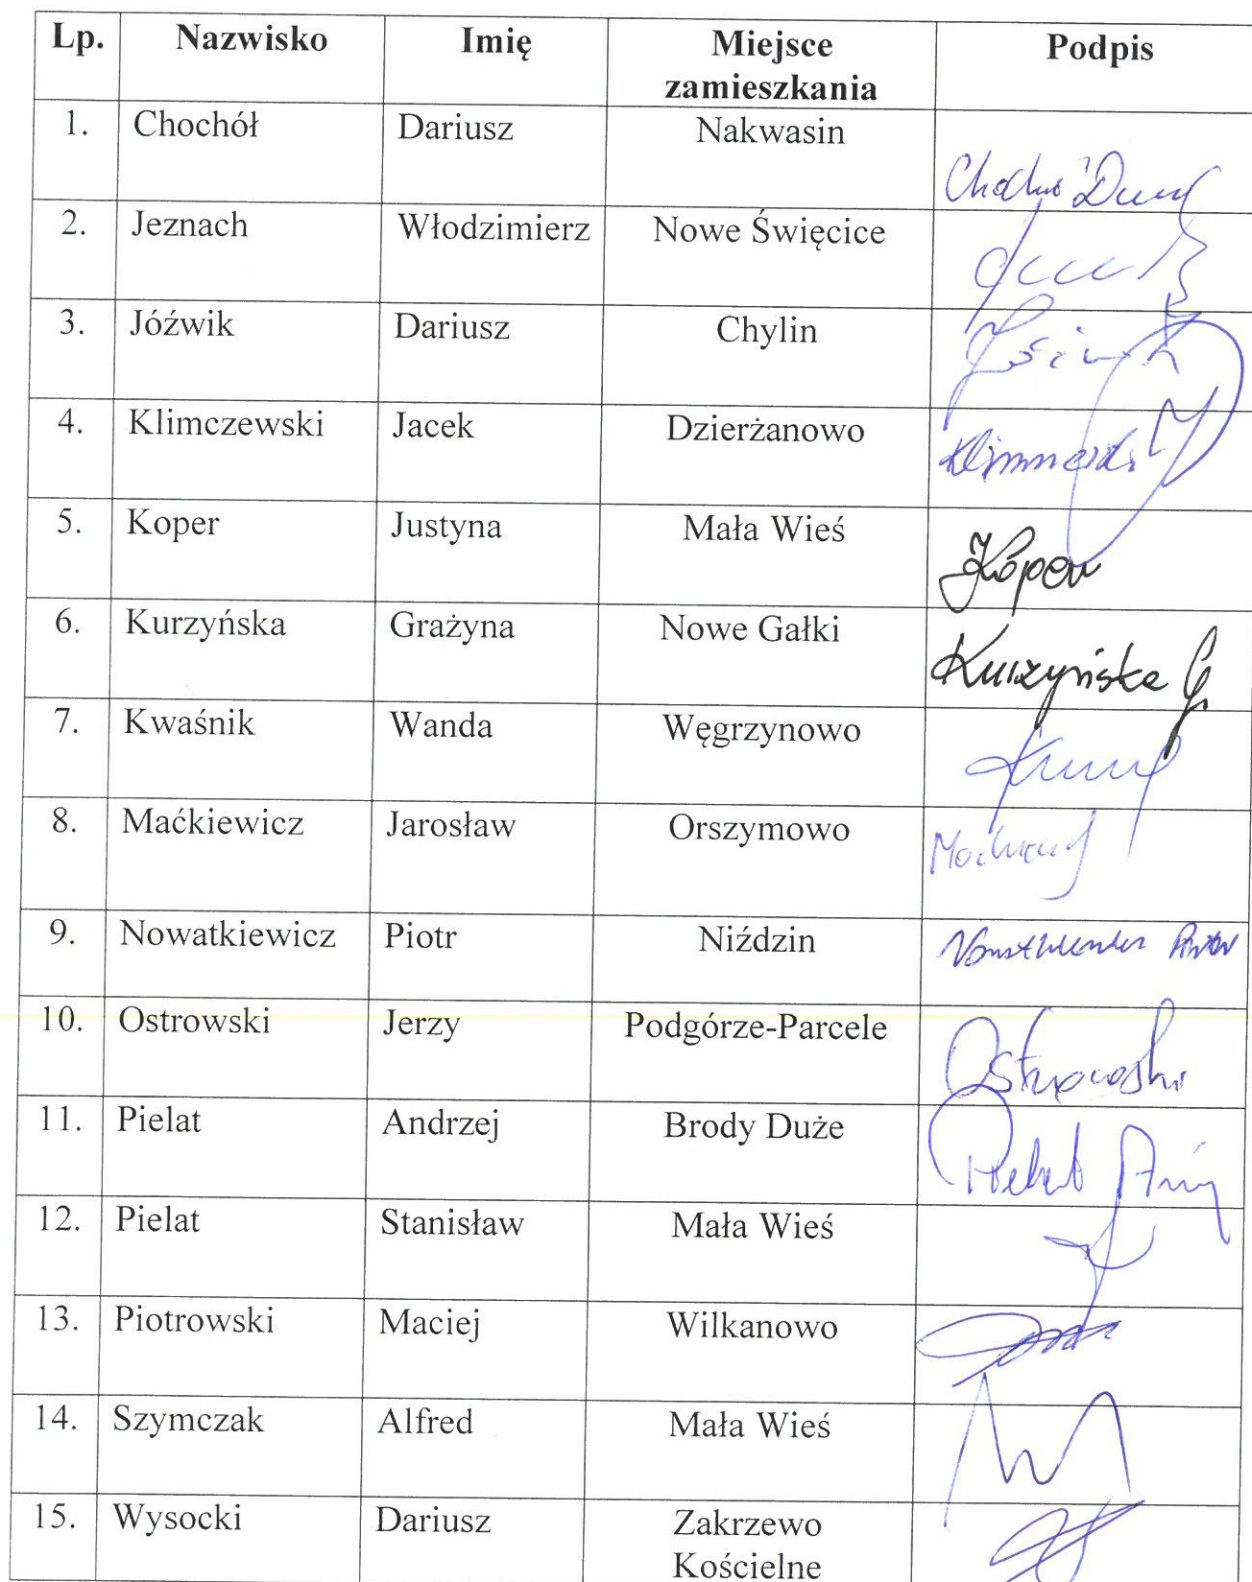 Lp. Nazwisko Imię Miejsce zamieszkania Podpis
1. Chochół Dariusz Nakwasin
2. Jeznach Włodzimierz Nowe Święcice
3. Jóźwik Dariusz Chylin
4. Klimczewski Jacek Dzierżanowo
5. Koper Justyna Mała Wieś Koper
6. Kurzyńska Grażyna Nowe Gałki Kurzyńska G.
7. Kwaśnik Wanda Węgrzynowo
8. Maćkiewicz Jarosław Orszymowo
9. Nowatkiewicz Piotr Niździn
10. Ostrowski Jerzy Podgórze-Parcele Ostrowski
11. Pielat Andrzej Brody Duże
12. Pielat Stanisław Mała Wieś
13. Piotrowski Maciej Wilkanowo
14. Szymczak Alfred Mała Wieś
15. Wysocki Dariusz Zakrzewo Kościelne